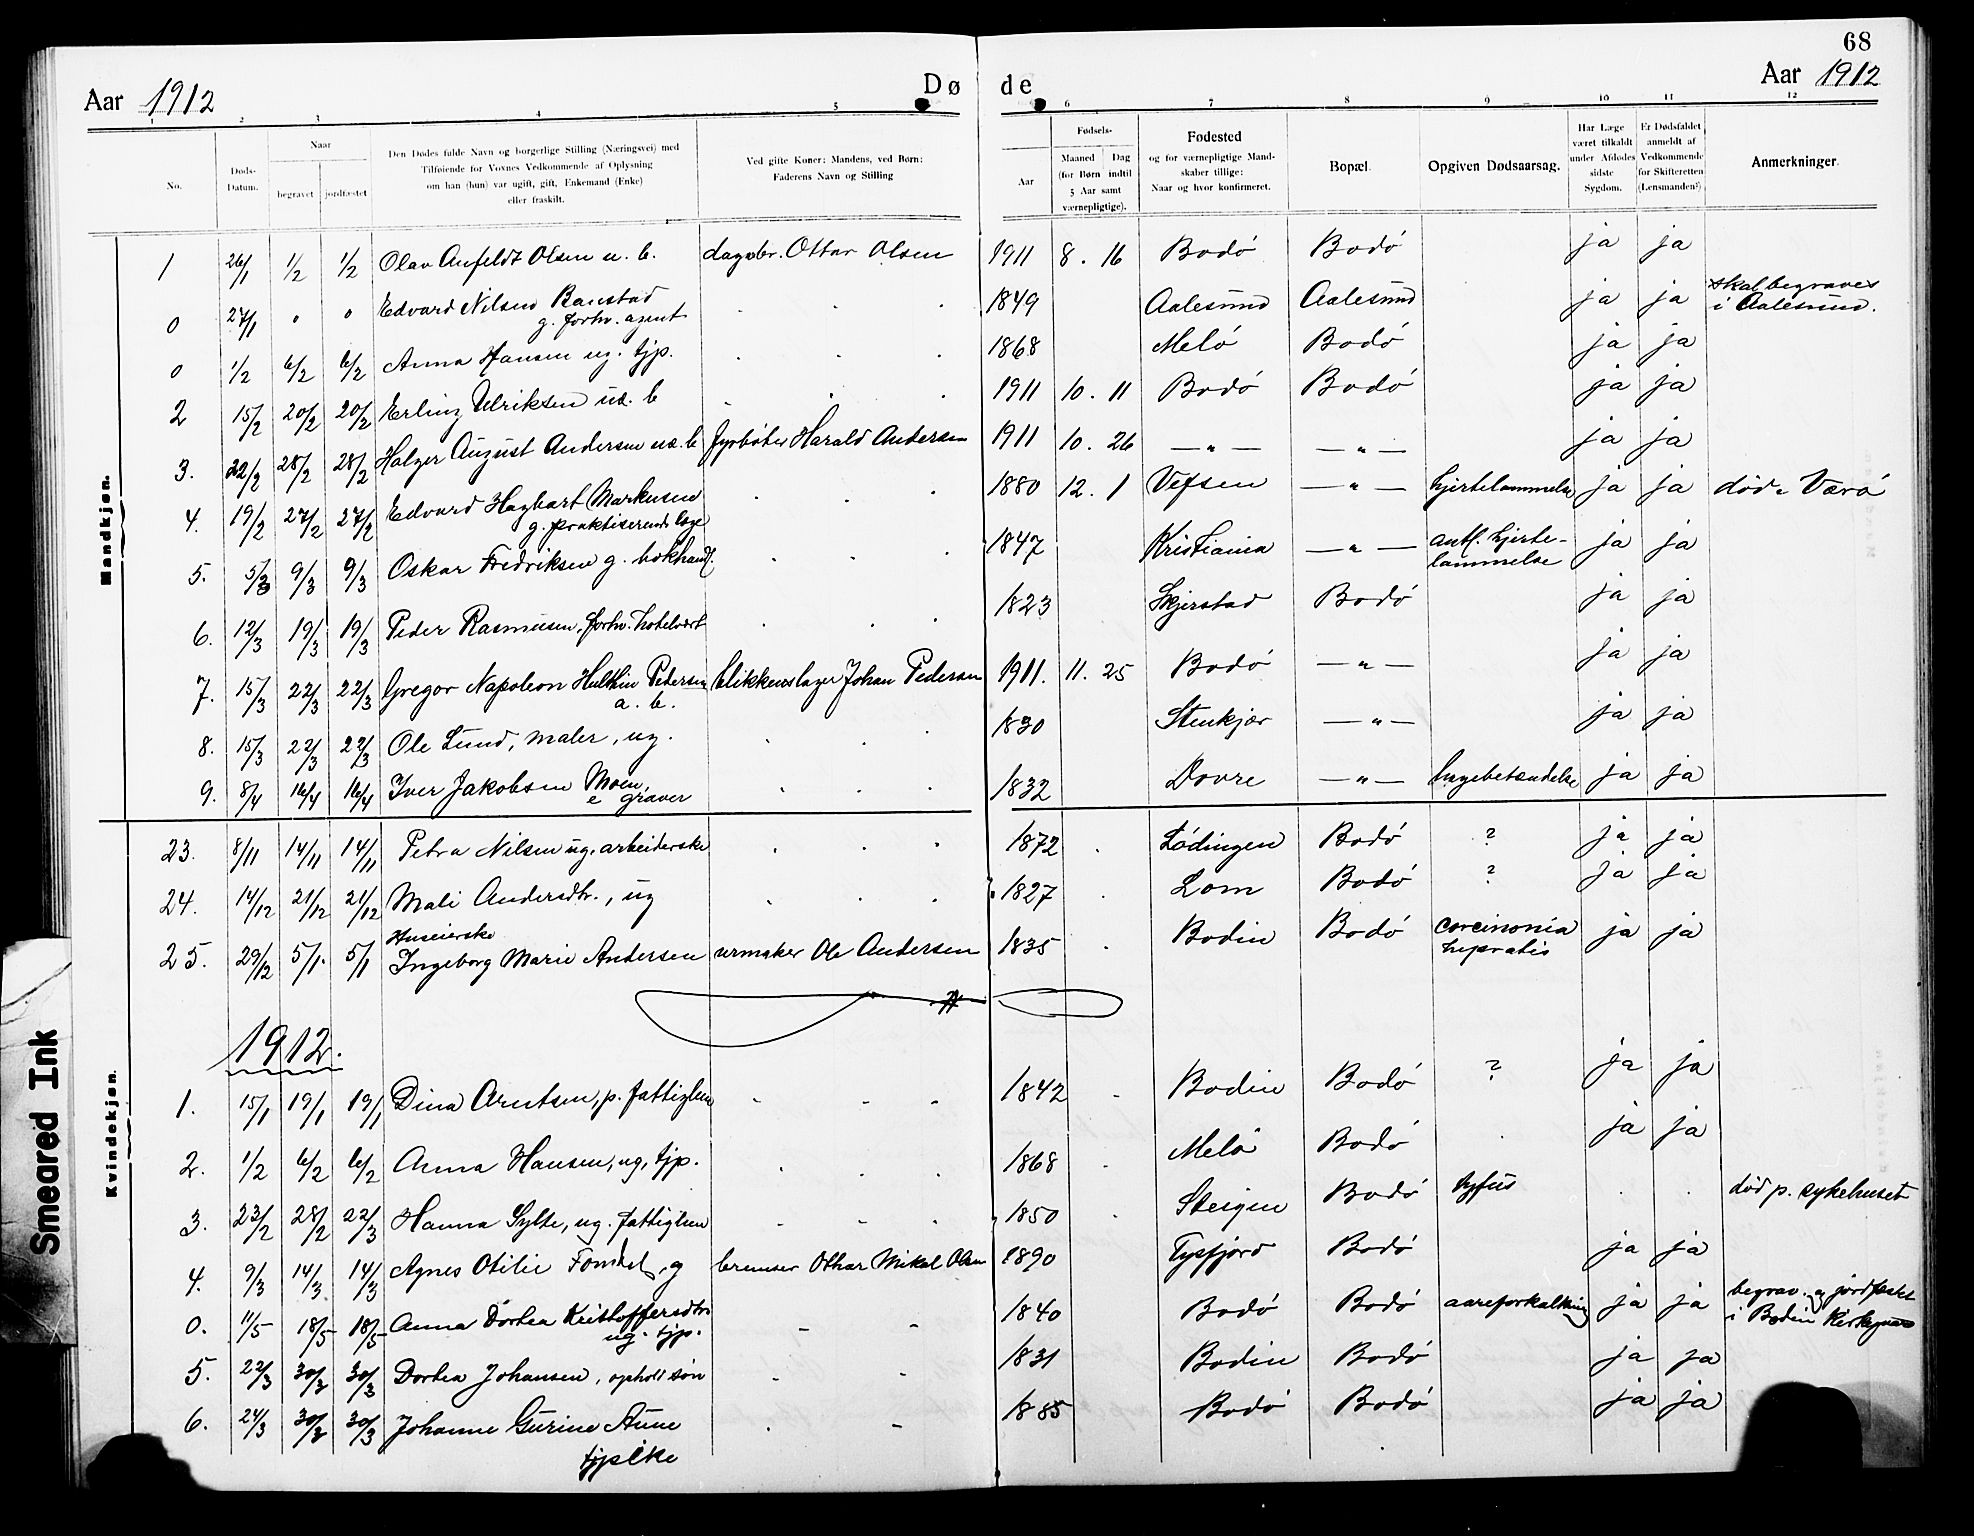 68
Aar 1912 Døde Aar 1912
1 2 3 4 5 6 7 8 9 10 11 12
No.
Døds-Datum.
Naar
begravet jordfæstet
Den Dødes fulde Navn og borgerlige Stilling (Næringsvei) med
Tilføiende for Voxnes Vedkommende af Oplysning
om han (hun) var ugift, gift, Enkemand (Enke)
eller fraskilt.
Ved gifte Koner: Mandens, ved Børn:
Faderens Navn og Stilling
Aar
Fødsels-
Maaned Dag
(for Børn indtil
5 Aar samt
værnepligtige).
Fødested
og for værnepligtige Mand-
skaber tillige:
Naar og hvor konfirmeret.
Bopæl.
Opgiven Dødsaarsag.
Har Læge
været tilkaldt
under Afdødes
sidste
Sygdom.
Er Dødsfaldet
anmeldt af
Vedkommende
for Skifteretten
(Lensmanden?)
Anmerkninger.
Mandkjøn.
1 26/1 1/2 1/2 Olav Anfeldt Olsen u. b. dagarb. Ottar Olsen 1911 8. 16 Bodó Bodó ja ja
0 27/1 " " Edvard Nilsen Banstad 1849 Aalesund Aalesund ja ja skal begraves
g. forhv. agent i Aalesund.
0 1/2 6/2 6/2 Anna Hansen ug. tjp. 1868 Meló Bodó ja ja
2 15/2 20/2 20/2 Erling Ulriksen u. b 1911 10. 11 Bodó Bodó ja ja
3. 22/2 28/2 28/2 Holger August Andersen b fyrbøter Harald Andersen 1911 10. 26 — " — — " — ja ja
4. 19/2 27/2 27/2 Edvard Hagbart Markusen 1880 12. 1 Vefsen — " — hjertelammelse ja ja død i Væró
g. praktiserende læge
5. 5/3 9/3 9/3 Oskar Fredriksen g. bokhandl. 1847 Kristiania — " — antl. hjerte- ja ja
lammelse
6. 12/3 19/3 19/3 Peder Rasmussen, forhv. hotelvært 1823 Skjerstad Bodó ja ja
7. 15/3 22/3 22/3 Gregor Napoleon Hulthin Pedersen blikkenslager Johan Pedersen 1911. 11. 25 Bodó — " — ja ja
a. b.
8. 15/3 22/3 22/3 Ole Lund, maler, ug. 1830 Stenkjær — " — ja ja
9. 8/4 16/4 16/4 Iver Jakobsen Moen, 1832 Dovre — " — lungebetændelse ja ja
e graver
Kvindekjøn.
23. 8/11 14/11 14/11 Petra Nilsen ug. arbeiderske 1872 Lødingen Bodó ? ja ja
24. 14/12 21/12 21/12 Mali Andersdtr., ug 1827 Lom Bodó ? ja ja
Huseierske
25. 29/12 5/1. 5/1 Ingeborg Marie Andersen urmaker Ole Andersen 1835 Bodin Bodó corcinonia ja ja
hepratis
1912.
1. 15/1 19/1 19/1 Dina Arntsen, p. fattiglem 1842 Bodin Bodó ? ja ja
2. 1/2 6/2 6/2 Anna Hansen, ug, tjp. 1868 Meló Bodó ja ja
3. 23/2 28/2 22/3 Hanna Sylte, ug. fattiglem 1850 Steigen Bodó tyfus død p. sykehuset
4. 9/3 14/3 14/3 Agnes Otilie g bremser Othar Mikal Olsen 1890 Tysfjord Bodó ja ja
0. 11/5 18/5 18/5 Anna Dortea Kristoffersdtr 1840 Bodó Bodó aareforkalkning ja ja begrav. og jordfæstet
ug. tjp. i Bodin Kirkegaard
5. 22/3 30/3 30/3 Dortea Johansen, 1831 Bodin Bodó ja ja
6. 24/3 30/3 30/3 Johanne Gurine Aune 1885 Bodó Bodó ja ja
tjpike
Smeared Ink